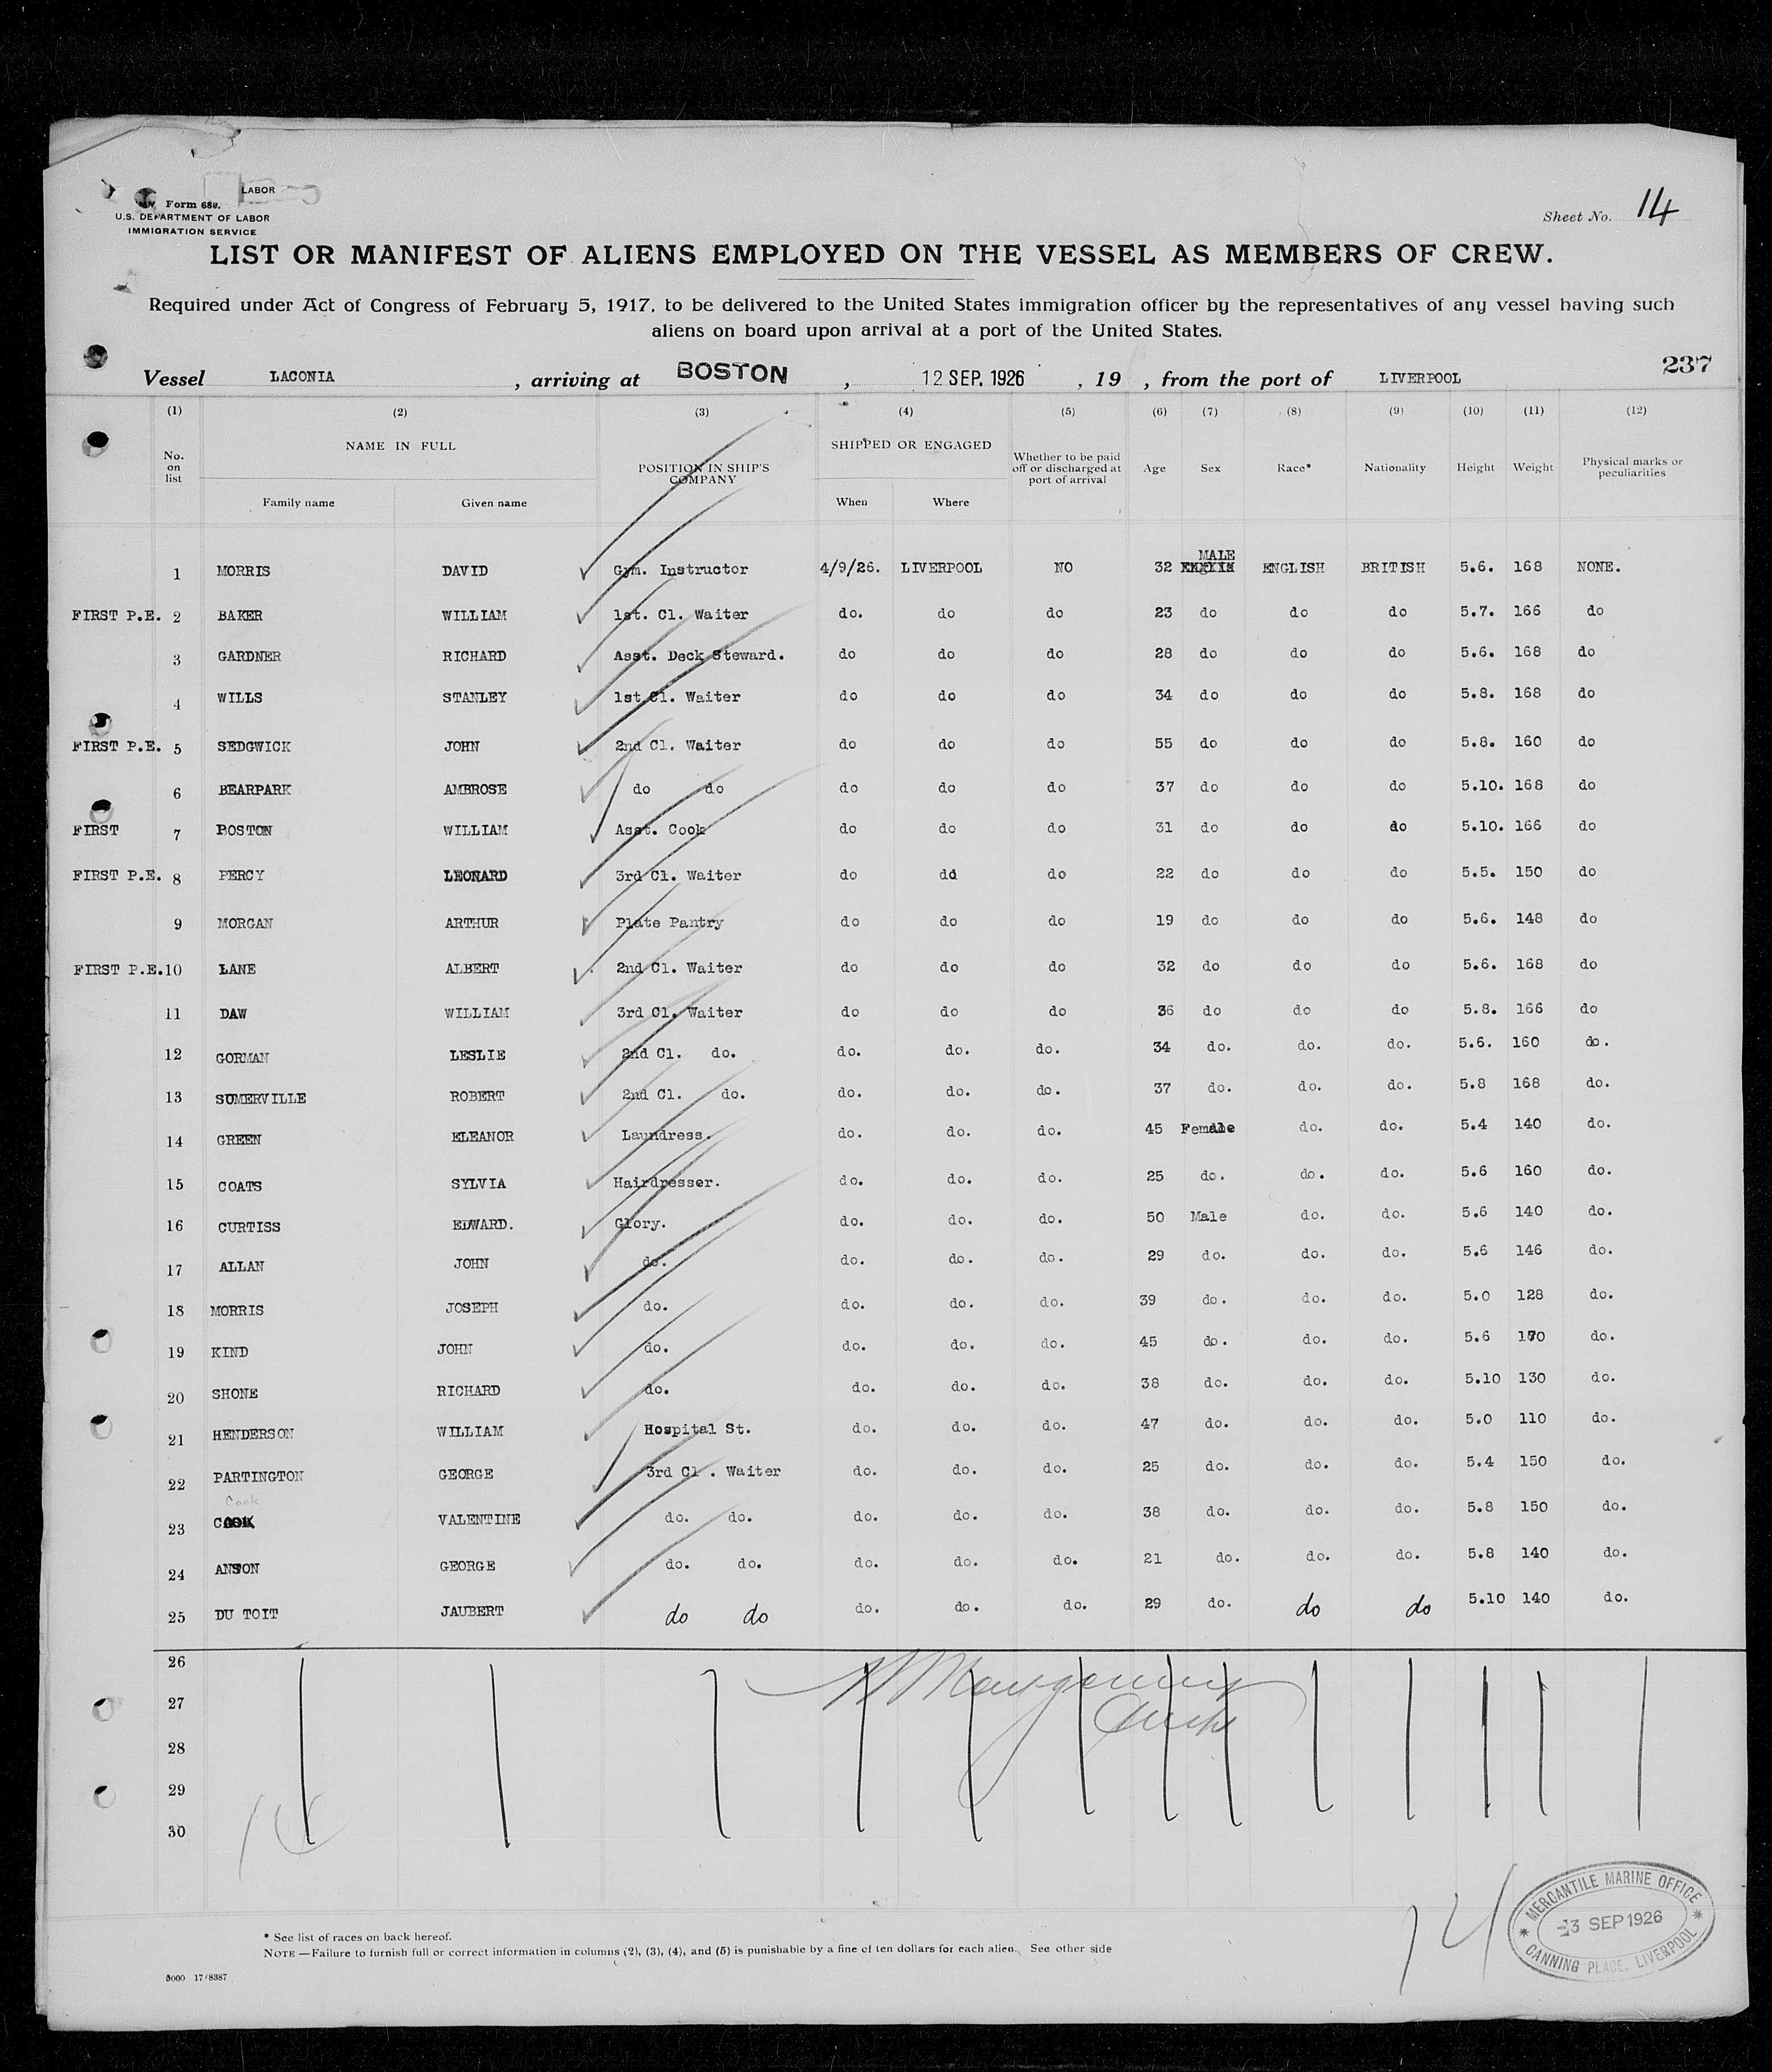 LABOR
Form 689.
U.S. DEPARTMENT OF LABOR
IMMIGRATION SERVICE
Sheet No. 14
LIST OR MANIFEST OF ALIENS EMPLOYED ON THE VESSEL AS MEMBERS OF CREW.
Required under Act of Congress of February 5, 1917, to be delivered to the United States immigration officer by the representatives of any vessel having such
aliens on board upon arrival at a port of the United States.
237
Vessel LACONIA , arriving at BOSTON , 12 SEP. 1926 , 19 , from the port of LIVERPOOL
(1) (2) (3) (4) (5) (6) (7) (8) (9) (10) (11) (12)
No. on list NAME IN FULL Family name Given name POSITION IN SHIP'S COMPANY SHIPPED OR ENGAGED When Where Whether to be paid off or discharged at port of arrival Age Sex Race* Nationality Height Weight Physical marks or peculiarities
1 MORRIS DAVID Gym. Instructor 4/9/26. LIVERPOOL NO 32 MALE ENGLISH BRITISH 5.6. 168 NONE.
FIRST P.E. 2 BAKER WILLIAM 1st. Cl. Waiter do. do do 23 do do do 5.7. 166 do
3 GARDNER RICHARD Asst. Deck Steward. do do do 28 do do do 5.6. 168 do
4 WILLS STANLEY 1st Cl. Waiter do do do 34 do do do 5.8. 168 do
FIRST P.E. 5 SEDGWICK JOHN 2nd Cl. Waiter do do do 55 do do do 5.8. 160 do
6 BEARPARK AMBROSE do do do do do 37 do do do 5.10. 168 do
FIRST 7 POSTON WILLIAM Asst. Cook do do do 31 do do do 5.10. 166 do
FIRST P.E. 8 PERCY LEONARD 3rd Cl. Waiter do dd do 22 do do do 5.5. 150 do
9 MORGAN ARTHUR Plate Pantry do do do 19 do do do 5.6. 148 do
FIRST P.E. 10 LANE ALBERT 2nd Cl. Waiter do do do 32 do do do 5.6. 168 do
11 DAW WILLIAM 3rd Cl. Waiter do do do 36 do do do 5.8. 166 do
12 GORMAN LESLIE 2nd Cl. do. do. do. do. 34 do. do. do. 5.6. 160 do.
13 SUMERVILLE ROBERT 2nd Cl. do. do. do. do. 37 do. do. do. 5.8 168 do.
14 GREEN ELEANOR Laundress. do. do. do. 45 Female do. do. 5.4 140 do.
15 COATS SYLVIA Hairdresser. do. do. do. 25 do. do. do. 5.6 160 do.
16 CURTISS EDWARD. Glory. do. do. do. 50 Male do. do. 5.6 140 do.
17 ALLAN JOHN do. do. do. do. 29 do. do. do. 5.6 146 do.
18 MORRIS JOSEPH do. do. do. do. 39 do. do. do. 5.0 128 do.
19 KIND JOHN do. do. do. do. 45 do. do. do. 5.6 170 do.
20 SHONE RICHARD do. do. do. do. 38 do. do. do. 5.10 130 do.
21 HENDERSON WILLIAM Hospital St. do. do. do. 47 do. do. do. 5.0 110 do.
22 PARTINGTON GEORGE 3rd Cl . Waiter do. do. do. 25 do. do. do. 5.4 150 do.
Cook
23 COOK VALENTINE do. do. do. do. do. 38 do. do. do. 5.8 150 do.
24 ANSON GEORGE do. do. do. do. do. 21 do. do. do. 5.8 140 do.
25 DU TOIT JAUBERT do do do. do. do. 29 do. do do 5.10 140 do.
26
27
28
29
30
14
MERCANTILE MARINE OFFICE
3 SEP 1926
CANNING PLACE, LIVERPOOL
* See list of races on back hereof.
NOTE —Failure to furnish full or correct information in columns (2), (3), (4), and (5) is punishable by a fine of ten dollars for each alien. See other side
5000 17/8387